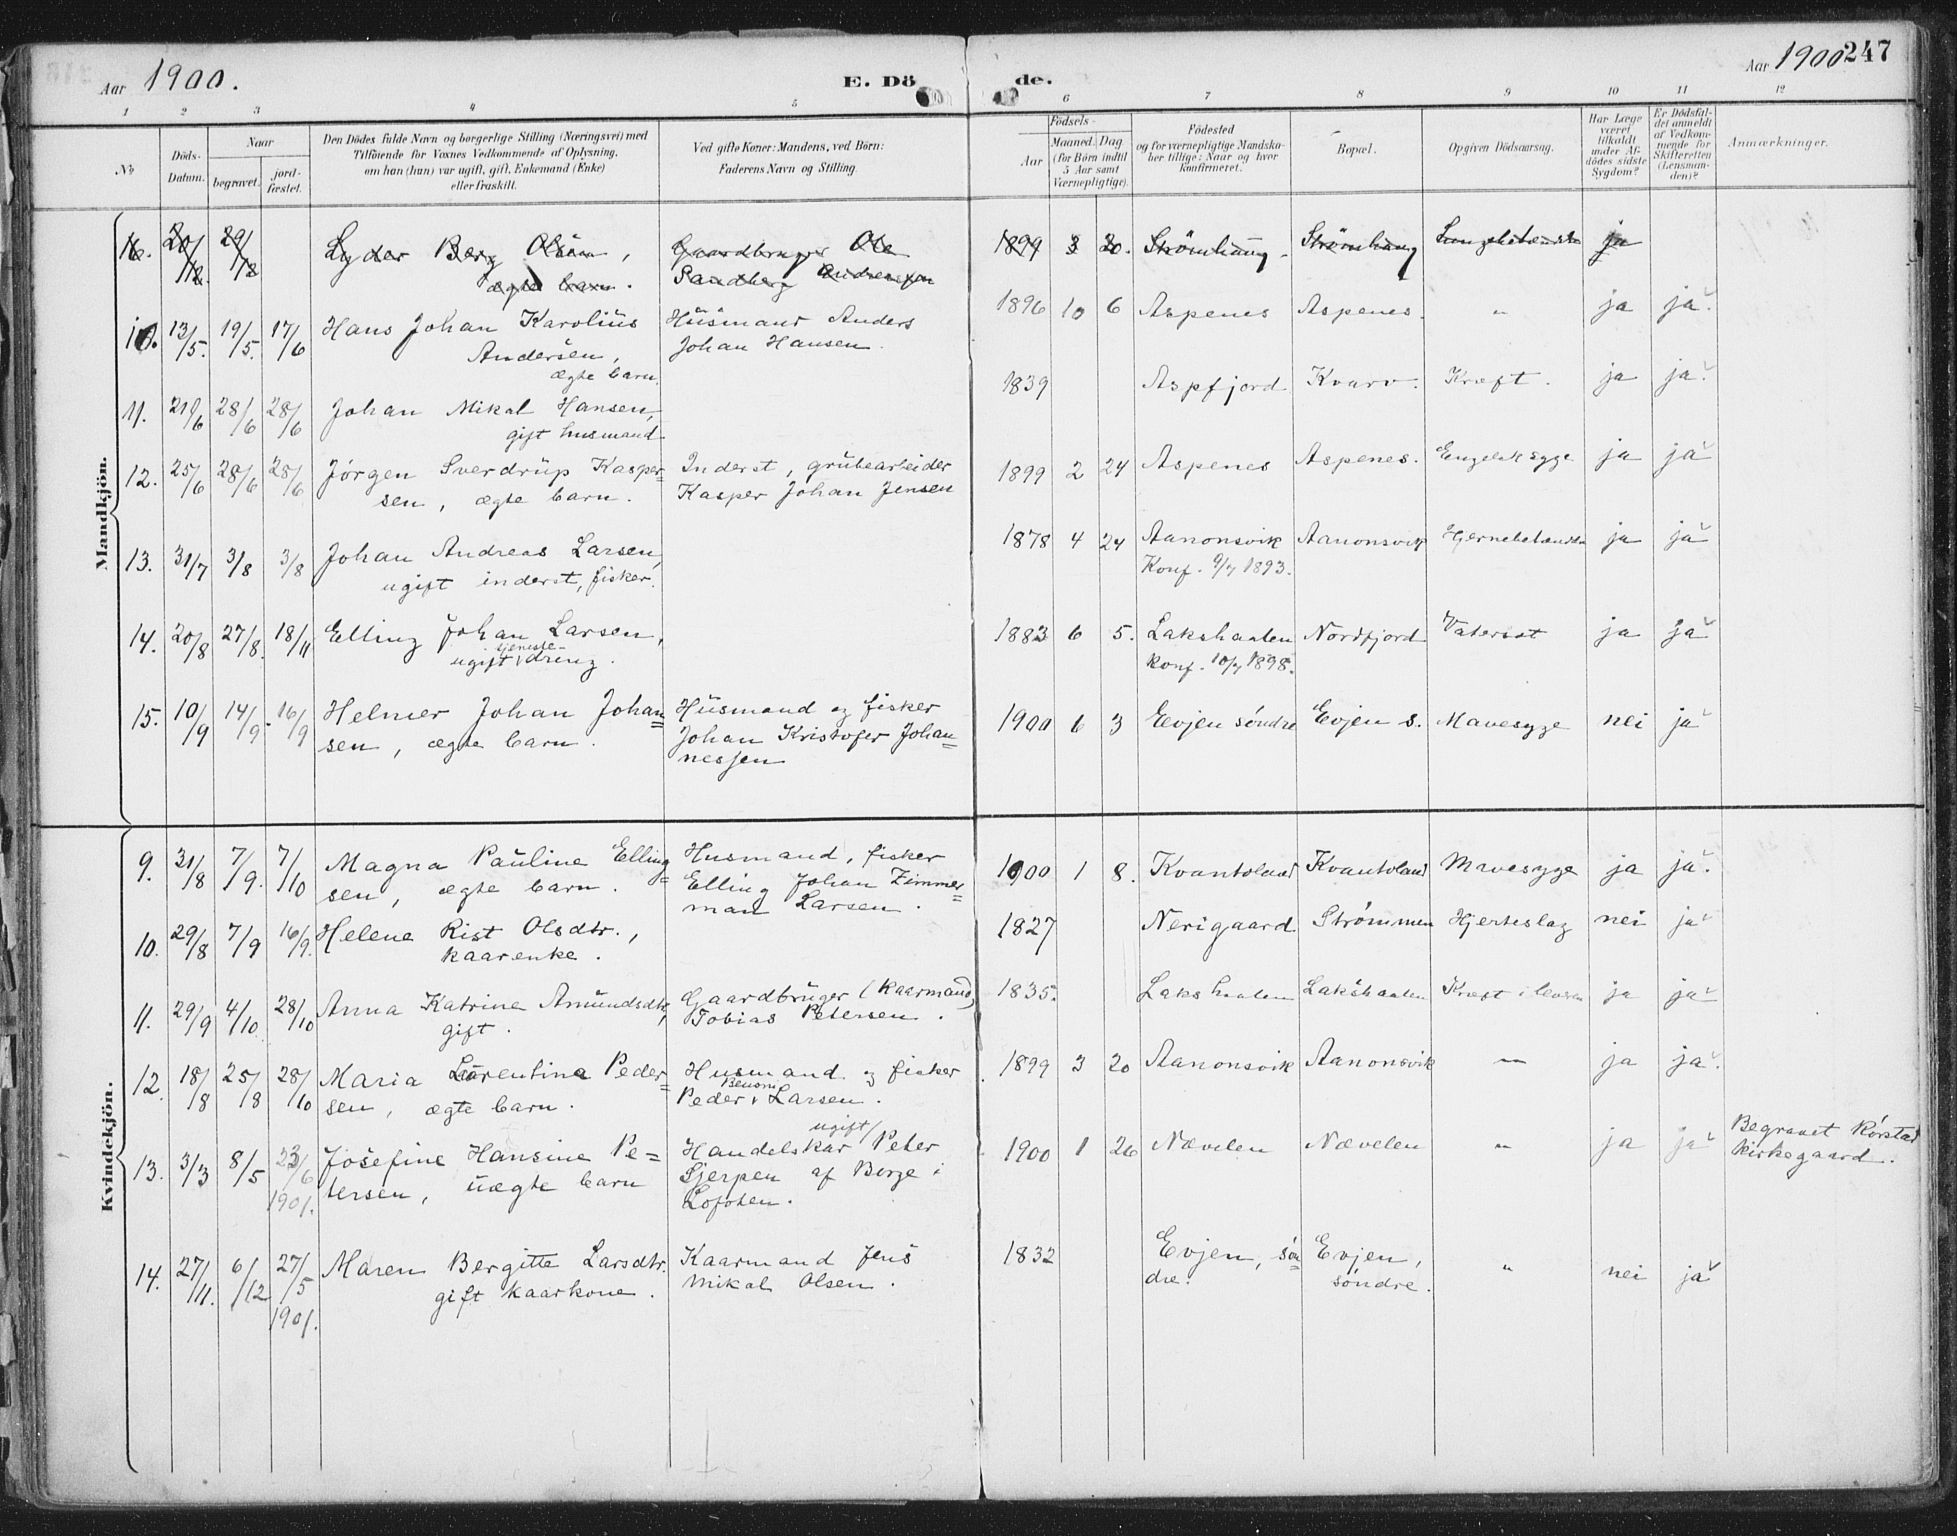 Aar 1900.
E. Döde.
Aar 1900 247
1 2 3 4 5 6 7 8 9 10 11 12
No
Döds-Datum.
Naar
begravet.
jord-fæstet.
Den Dödes fulde Navn og borgerlige Stilling (Næringsvei) med
Tilföiende for Voxnes Vedkommende af Oplysning,
om han (hun) var ugift, gift, Enkemand (Enke)
eller fraskilt.
Ved gifte Koner: Mandens, ved Börn:
Faderens Navn og Stilling.
Födsels-
Aar
Maaned. Dag
(for Börn indtil
5 Aar samt
Værnepligtige).
Födested
og for værnepligtige Mandska-
ber tillige: Naar og hvor
konfirmeret.
Bopæl.
Opgiven Dödsaarsag.
Har Læge
været
tilkaldt
under Af-
dödes sidste
Sygdom?
Er Dödsfal-
det anmeldt
af Vedkom-
mende for
Skifteretten
(Lensman-
den)?
Anmærkninger.
Mandkjön.
16. 20/12 29/12 Lyder Berg Olsen, Gaardbruger Ole 1899 3 20. Strömhaug. Strömhaug ja
ægte barn. Sandberg Andreassen
10. 13/5. 19/5. 17/6 Hans Johan Karolius Husmand Anders 1896 10 6 Aspenes Aspenes. " ja ja
Andersen, Johan Hansen.
ægte barn.
11. 21/6 28/6 28/6 Johan Mikal Hansen, 1839 Aspfjord Kvarv. Kræft. ja ja
gift husmand
12. 25/6 28/6 28/6 Jörgen Sverdrup Kasper- Inderst, grubearbeider 1899 2 24 Aspenes Aspenes. Engelsk syge ja ja
sen, ægte barn. Kasper Johan Jensen
13. 31/7 3/8 3/8 Johan Andreas Larsen, 1878 4 24 Aanonsvik Aanonsvik ja ja
ugift inderst, fisker. Konf. 9/7 1893.
14. 20/8 27/8. 18/11 Elling Johan Larsen, 1883 6 5. Lakshaalen Nordfjord Vatersot ja ja
tjeneste-
ugift dreng. Konf. 10/7 1898.
15. 10/9 14/9. 16/9 Helmer Johan Johan= Husmand og fisker 1900 6 3 Evjen söndre Evjen s. Mavesyge nei ja
sen, ægte barn. Johan Kristofer Johan=
nessen
Kvindekjön.
9. 31/8 7/9. 7/10 Magna Pauline Elling= Husmand, fisker 1900 1 8. Kvantoland Kvantoland Mavesyge ja ja
sen, ægte barn. Elling Johan Zimmer=
man Larsen.
10. 29/8 7/9 16/9. Helene Rist Olsdtr., 1827 Nerigaard Strömmen Hjerteslag nei ja
kaarenke.
11. 29/9 4/10 28/10 Anna Katrine Amundsdtr, Gaardbruger (kaarmand) 1835. Lakshaalen Lakshaalen Kræft i leveren ja ja
gift. Tobias Petersen.
12. 18/8 25/8 28/10 Maria Laurentine Peder= Husmand og fisker 1899 3 20 Aanonsvik Aanonsvik — ja ja
sen, ægte barn. Peder Larsen.
13. 3/3 8/5 23/6 1901. Josefine Hansine Pe= ugift/ Handelskar Peter 1900 1 26 Nævelen Nævelen " ja ja Begravet Rörstad
tersen, uægte barn Sjerpen af Borge i kirkegaard.
Lofoten.
14. 27/11. 6/12 27/5 1901. Maren Bergitte Larsdtr. Kaarmand Jens 1832 Evjen, sön= Evjen, " nei ja
gift kaarkone. Mikal Olsen. dre. söndre.